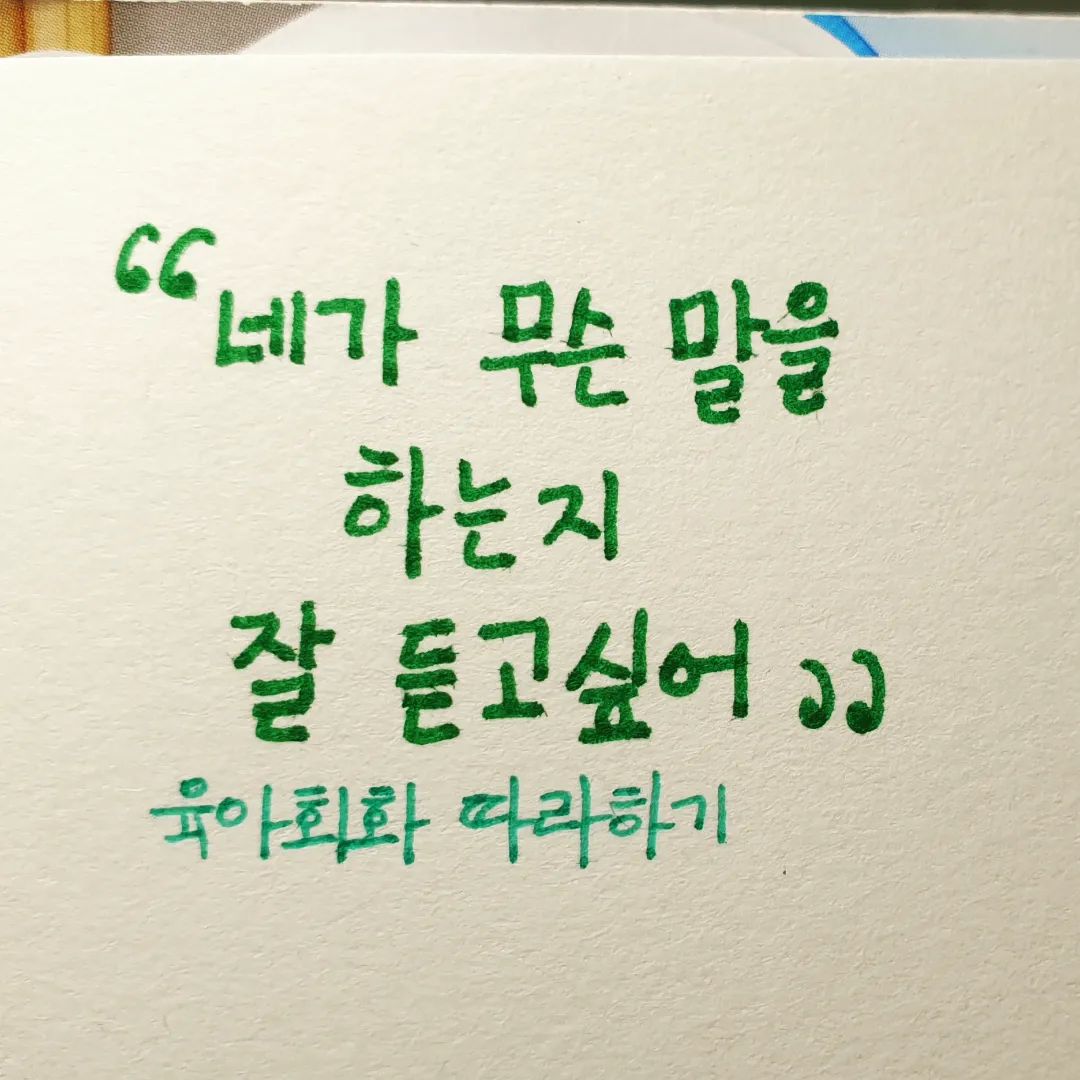 “네가 무슨 말을
하는지
잘 듣고싶어”
육아회화 따라하기